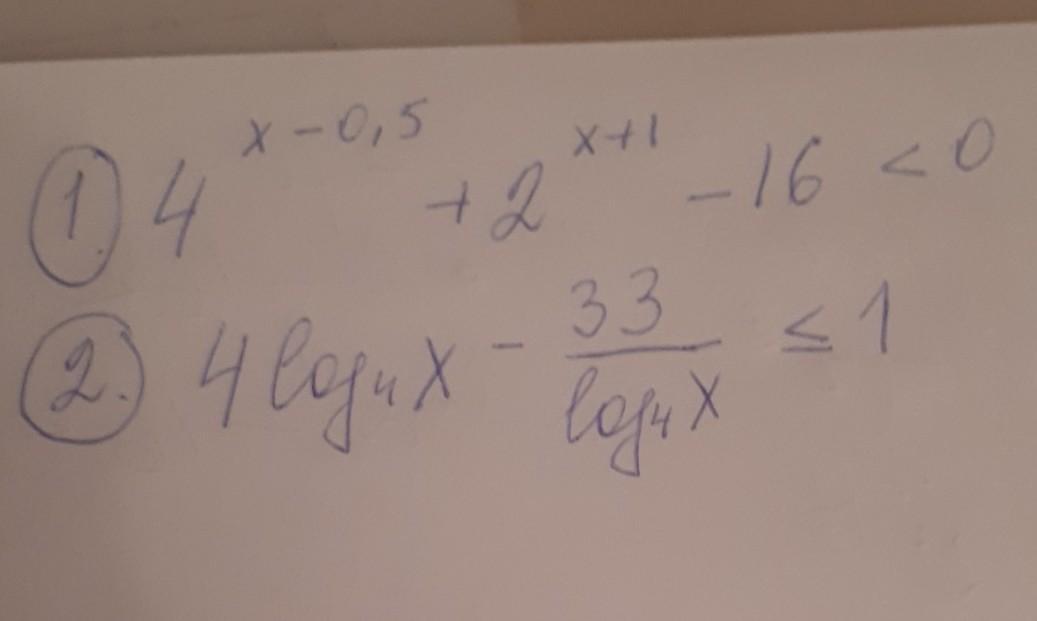 1. 4^{x-0,5} + 2^{x+1} - 16 < 0
2. 4 log₄ x - \frac{33}{log₄ x} ≤ 1